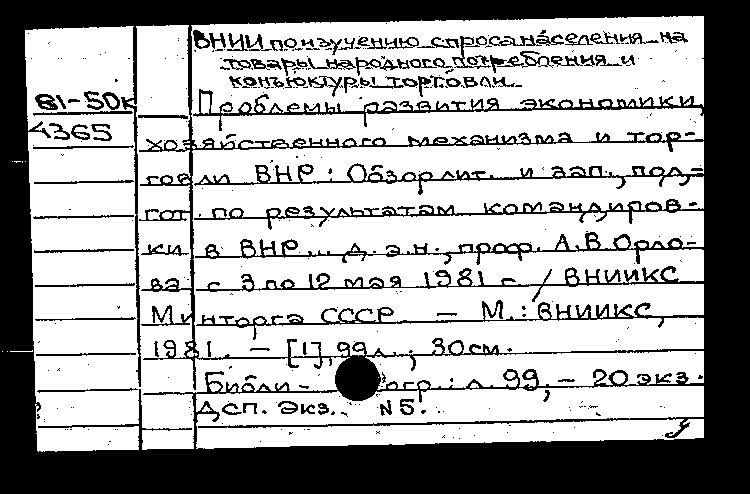 ВНИИ по изучению спроса населения на
товары народного потребления и
конъюктуры торговли.
81-50к
4365
Проблемы развития экономики,
хозяйственного механизма и тор-
говли ВНР : Обзор лит. и зап., под-
гот. по результатам командиров-
ки в ВНР... д.э.н., проф. А.В. Орло-
ва с 3 по 12 мая 1981 г. / ВНИИКС
Минторга СССР. — М. : ВНИИКС,
1981. — [1], 99 л. ; 30 см.
Библи- огр.: л. 99, — 20 экз.
ДСП. Экз. N 5.